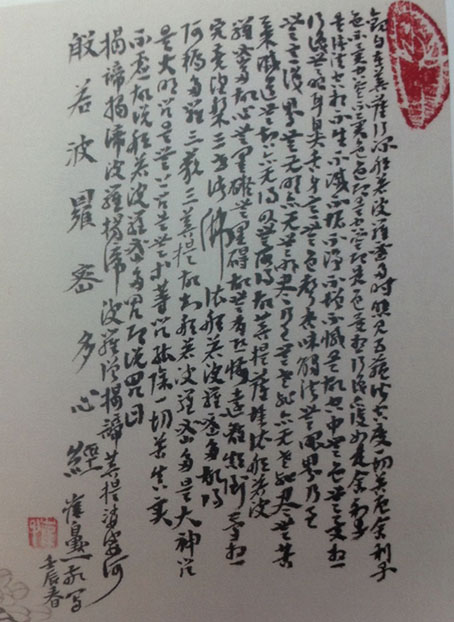 觀自在菩薩行深般若波羅蜜多時照見五蘊皆空度一切苦厄舍利子
色不異空空不異色色即是空空即是色受想行識亦復如是舍利子
是諸法空相不生不滅不垢不淨不增不減是故空中無色無受想
行識無眼耳鼻舌身意無色聲香味觸法無眼界乃至
無意識界無無明亦無無明盡乃至無老死亦無老死盡無苦
集滅道無智亦無得以無所得故菩提薩埵依般若波
羅蜜多故心無罣礙無罣礙故無有恐怖遠離顛倒夢想
究竟涅槃三世諸佛依般若波羅蜜多故得
阿耨多羅三藐三菩提故知般若波羅蜜多是大神咒
是大明咒是無上咒是無等等咒能除一切苦真實
不虛故說般若波羅蜜多咒即說咒曰
揭諦揭諦波羅揭諦波羅僧揭諦菩提薩婆訶
般若波羅蜜多心經
崔敬写
壬辰春